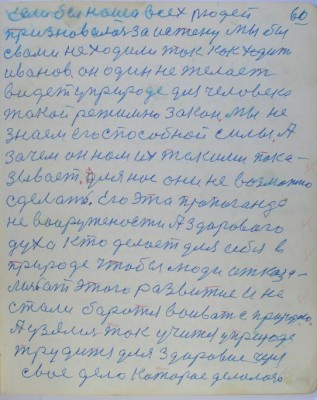 если бы наша всех людей 60
признавалась за истену мы бы
свами не ходили так как ходит
иванов, он один не желает
видет у природе для человека
такой режимно закон. мы не
знаем его способной силы. А
зачем он нам их такими пока-
зывает. для нас они не возможно
сделать. Его эта пропоганда
не вооружености А здорового
духа кто делает для себя в
природе чтобы люди отказа-
от этого развитие и не
стали боротся воевать с природо
А узялись так учится у природе
трудится для здоровие
свое дело которое делалось